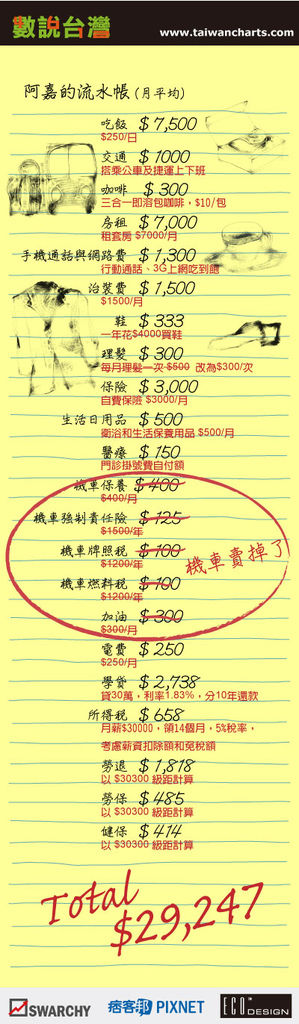 數說台灣
www.taiwancharts.com
阿嘉的流水帳(月平均)
吃飯 $7,500
$250/日
交通 $1000
搭乘公車及捷運上下班
咖啡 $300
三合一即溶包咖啡，$10/包
房租 $7,000
租套房 $7000/月
手機通話與網路費 $1,300
行動通話、3G上網吃到飽
治裝費 $1,500
$1500/月
鞋 $333
一年花$4000買鞋
理髮 $300
每月理髮一次 $500 改為$300/次
保險 $3,000
自費保險 $3000/月
生活日用品 $500
衛浴和生活保養用品 $500/月
醫療 $150
門診掛號費自付額
機車保養 $400
$400/月
機車強制責任險 $125
$1500/年
機車牌照稅 $100
$1200/年
機車賣掉了
機車燃料稅 $100
$1200/年
加油 $300
$300/月
電費 $250
$250/月
學貸 $2,738
貸30萬，利率1.83%，分10年還款
所得稅 $658
月薪$30000，領14個月，5%稅率，
考慮薪資扣除額和免稅額
勞退 $1,818
以 $30300 級距計算
勞保 $485
以 $30300 級距計算
健保 $414
以 $30300 級距計算
Total
$29,247
SWARCHY
痞客邦 PIXNET
ECO DESIGN